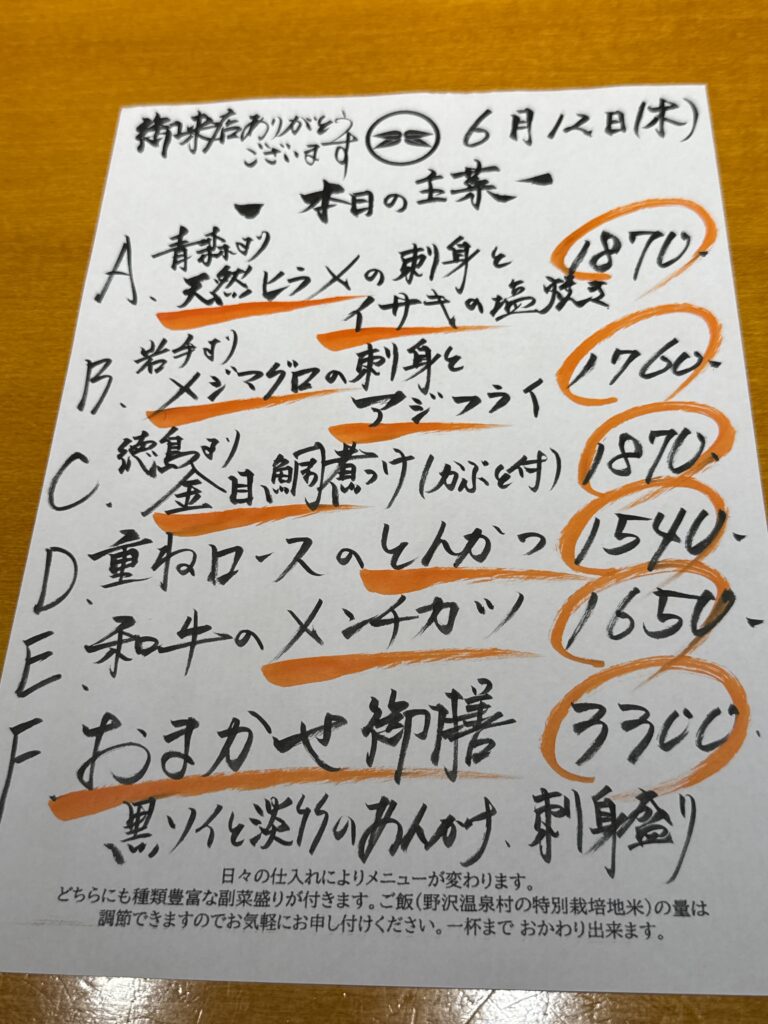 御来店ありがとう
ございます
6月12日(木)
本日の主菜
A. 青森より
天然ヒラメの刺身と
イサキの塩焼き
1870-
B. 岩手より
メジマグロの刺身と
アジフライ
1760-
C. 徳島より
金目鯛煮つけ(かぶと付)
1870-
D. 重ねロースのとんかつ 1540-
E. 和牛のメンチカツ 1650-
F. おまかせ御膳 3300.
黒ソイと淡竹のあんかけ、刺身盛り
日々の仕入れによりメニューが変わります。
どちらにも種類豊富な副菜盛りが付きます。ご飯(野沢温泉村の特別栽培地米)の量は
調節できますのでお気軽にお申し付けください。一杯まで おかわり出来ます。